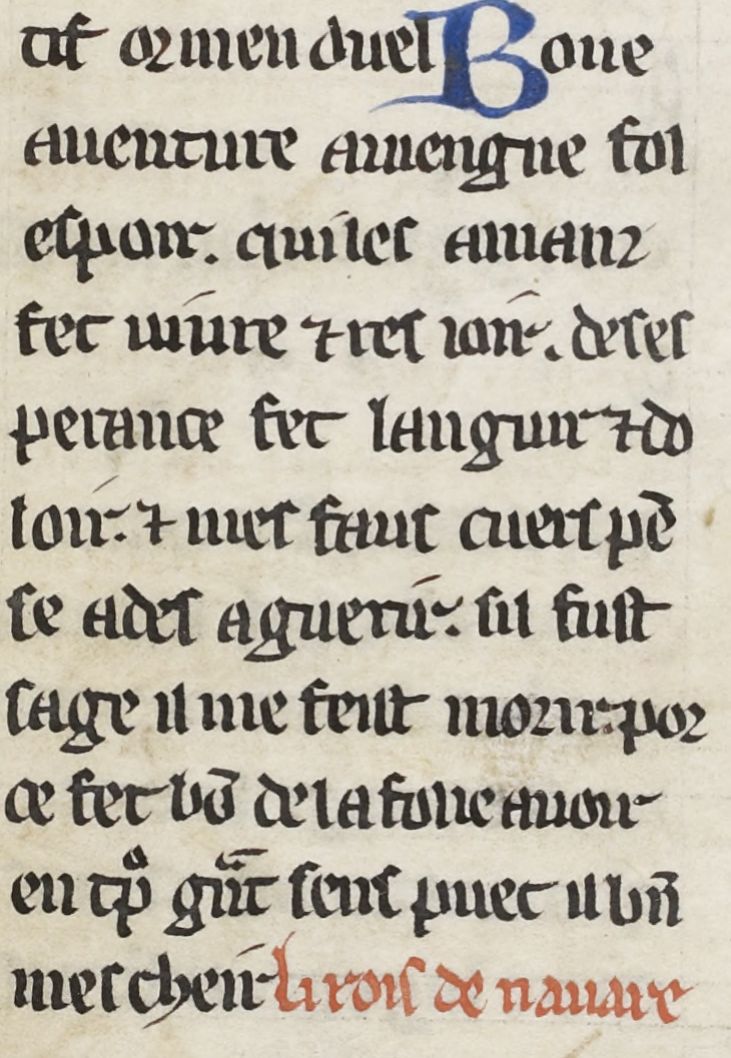 tif or men duel Bone
auenture auiengne fol
espoir. qui les amanz
fet uiure ⁊ res ioir. deses
perance fet languir ⁊ do
loir. ⁊ mes faus cuers pē
se ades a guerir. sil fust
sage il me feist morir. por
ce fet bō de la folie auoir
en tͦp grāt sens puet il bn̄
mescheir li rois de nauare